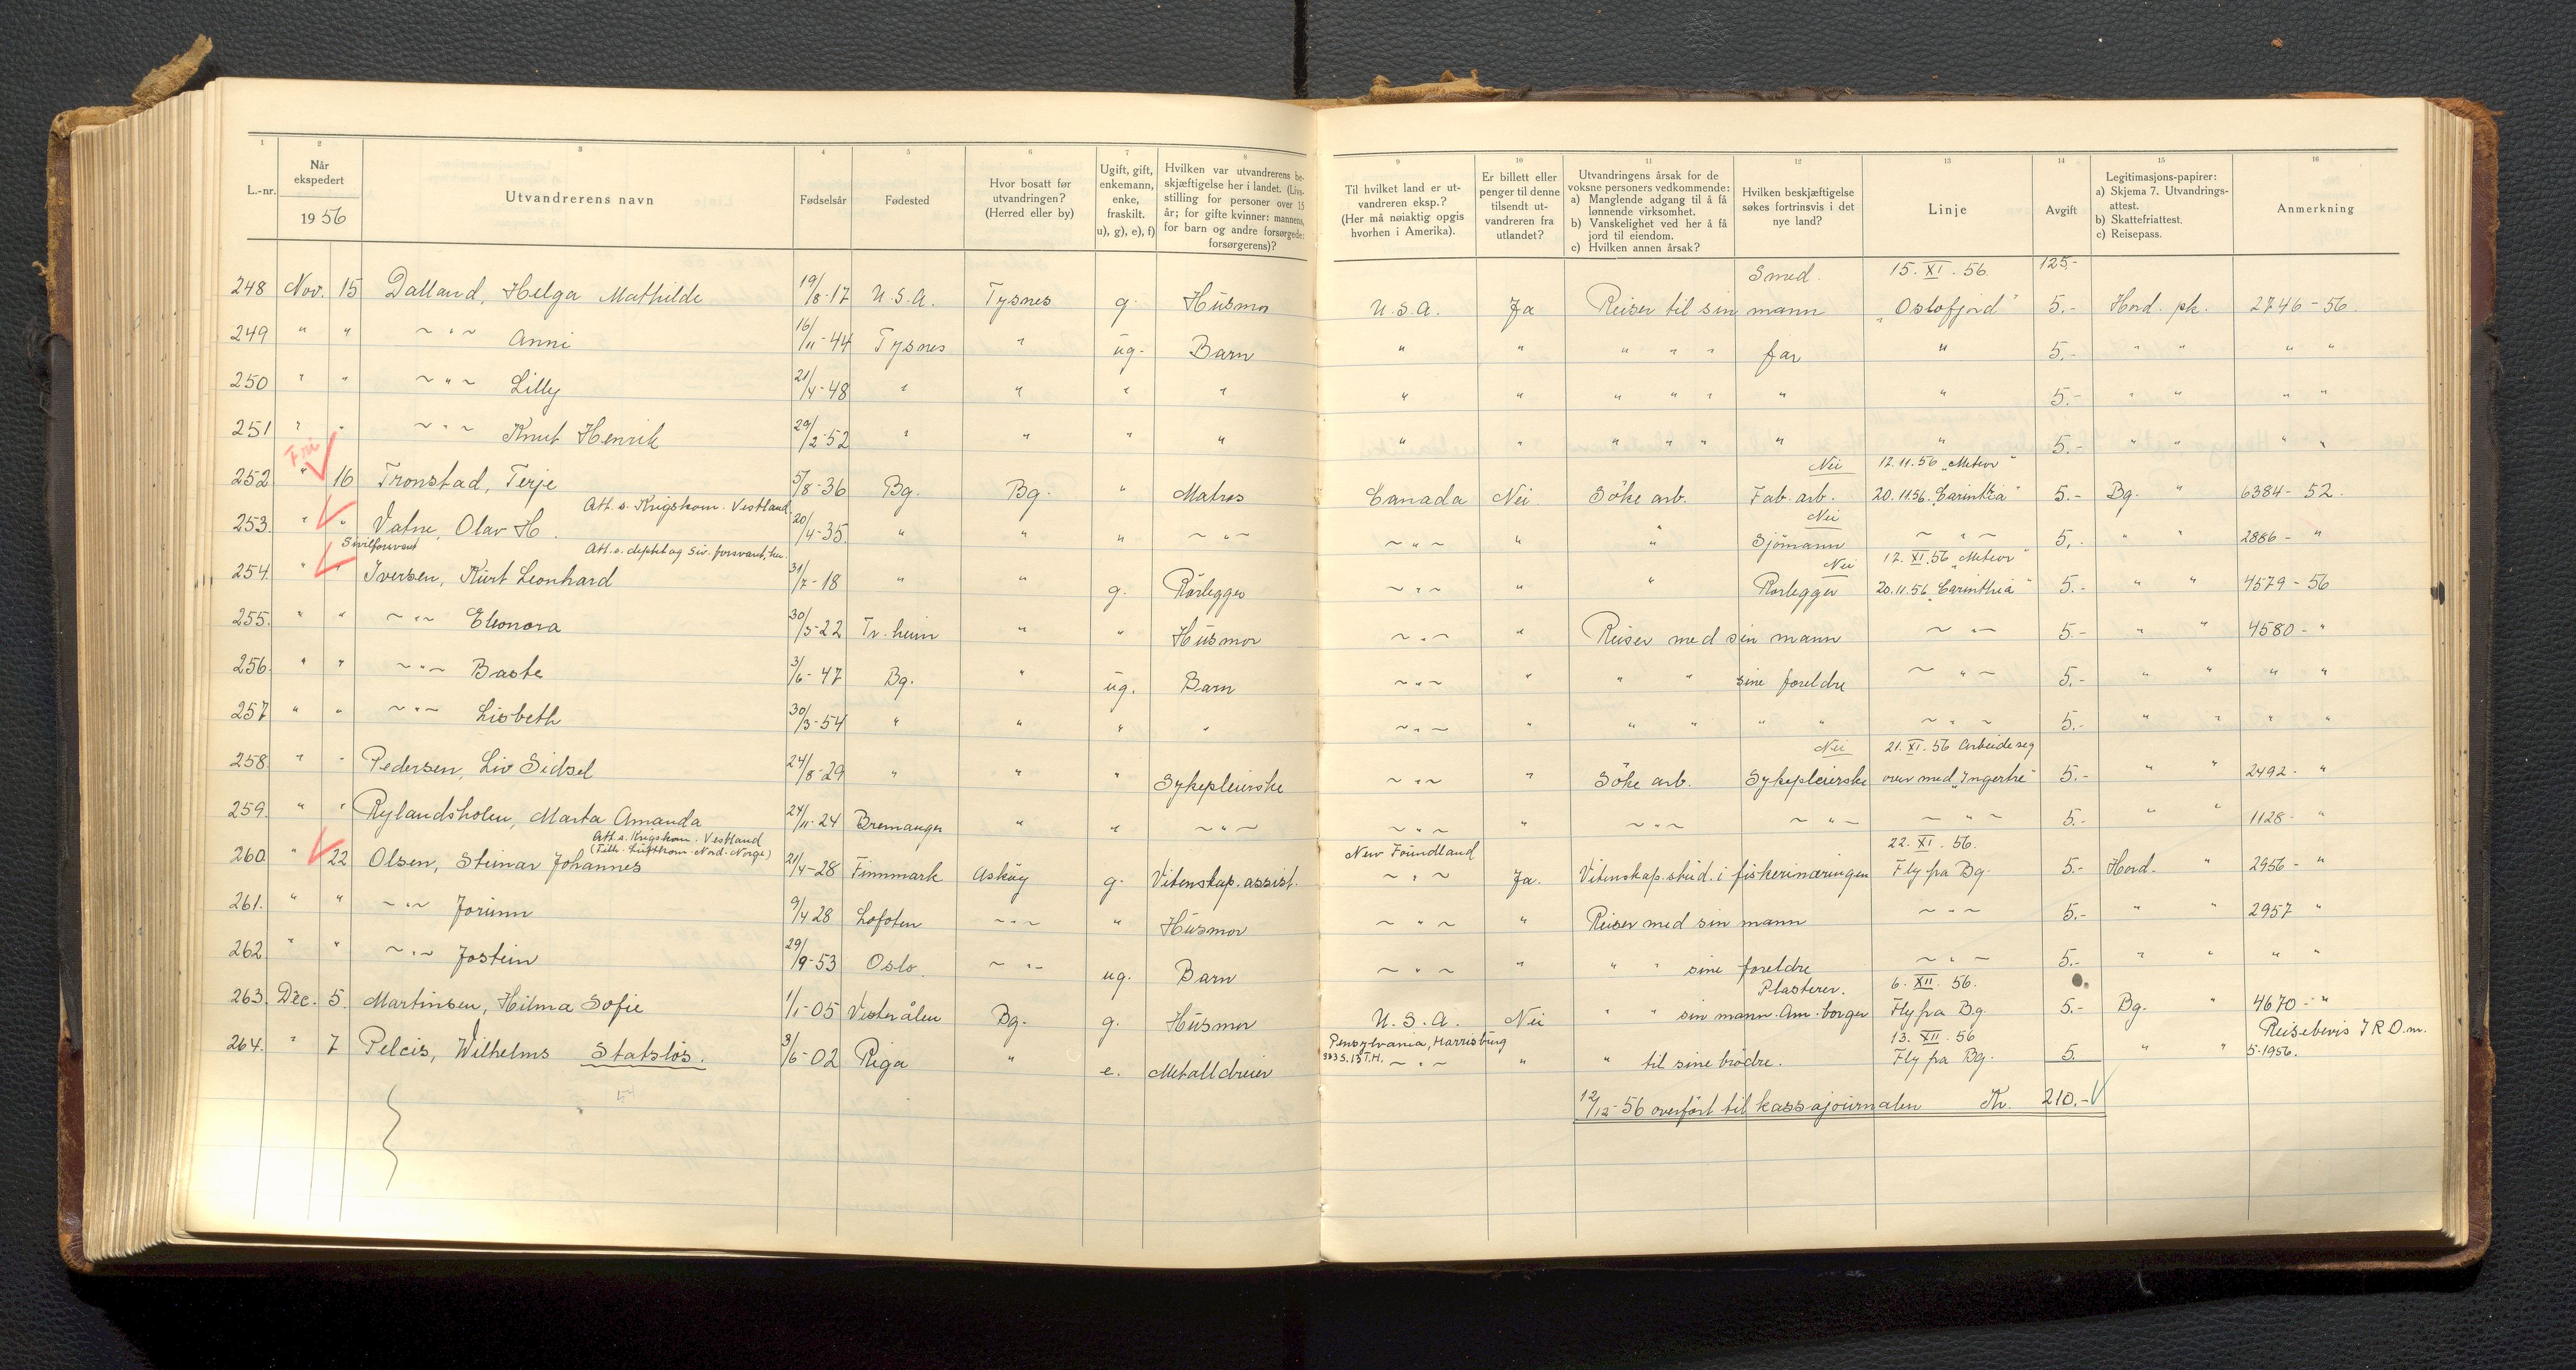 1 2 3 4 5 6 7 8 9 10 11 12 13 14 15 16
L.-nr. | Når ekspedert 1956 | Utvandrerens navn | Fødselsår | Fødested | Hvor bosatt før utvandringen? (Herred eller by) | Ugift, gift, enkemann, enke, fraskilt. u), g), e), f) | Hvilken var utvandrerens beskjæftigelse her i landet. (Livsstilling for personer over 15 år; for gifte kvinner: mannens, for barn og andre forsørgede: forsørgerens)? | Til hvilket land er utvandreren eksp.? (Her må nøiaktig opgis hvorhen i Amerika). | Er billett eller penger til denne tilsendt utvandreren fra utlandet? | Utvandringens årsak for de voksne personers vedkommende: a) Manglende adgang til å få lønnende virksomhet. b) Vanskelighet ved her å få jord til eiendom. c) Hvilken annen årsak? | Hvilken beskjæftigelse søkes fortrinsvis i det nye land? | Linje | Avgift | Legitimasjons-papirer: a) Skjema 7. Utvandringsattest. b) Skattefriattest. c) Reisepass. | Anmerkning
Smed. 15. XI. 56. 125.-
248 Nov. 15 Dalland, Helga Mathilde 19/8-17 U.S.A. Tysnes g. Husmor U.S.A. Ja Reiser til sin mann "Oslofjord" 5.- Hord. pk. 2746-56.
249 " " ~"~ Anni 16/11-44 Tysnes " ug. Barn " " " " " far " 5.- " " " "
250 " " ~"~ Lilly 21/4-48 " " " " " " " " " " " 5.- " " " "
251 " " ~"~ Knut Henrik 29/2-52 " " " " " " " " " " " 5.- " " " "
Fri Nei 12.11.56 "Meteor"
252 " 16 Tronstad, Terje 5/8-36 Bg. Bg. " Matros Canada Nei Söke arb. Fab. arb. 20.11.56 "Carinthia" 5.- Bg. " 6384-52.
Att. s. Krigskom. Vestland Nei
253. " " Vatne, Olav H. 20/4-35. " " " ~"~ ~"~ " " Sjömann ~"~ 5,- " " 2886- "
Sivilforsvaret Att. s. deptet og Siv. forsvaret, her. Nei 12. XI. 56 "Meteor"
254. " " Iversen, Kurt Leonhard 31/7-18 " " g. Rörlegger ~"~ " " Rörlegger 20.11.56 "Carinthia" 5.- " " 4579-56
255. " " ~"~ Eleonora 30/5-22 Tr.heim " " Husmor ~"~ " Reiser med sin mann ~"~ 5.- " " 4580-"
256. " " ~"~ Baste 3/6-47 Bg. " ug. Barn ~"~ " " " sine foreldre ~"~ 5.- " " " "
257 " " ~"~ Lisbeth 30/3-54 " " " " ~"~ " " " " " ~"~ 5.- " " " "
Nei 21. XI. 56 Arbeide seg
258. " " Pedersen, Liv Sidsel 24/8-29 " " " Sykepleierske ~"~ " Söke arb. Sykepleierske over med "Ingertre" 5.- " " 2492-"
259. " " Rylandsholm, Marta Amanda 24/11-24 Bremanger " " ~"~ ~"~ " ~"~ ~"~ ~"~ 5.- " " 1128-"
Att. s. Krigskom. Vestland
(Tilh. Luftkom. Nord-Norge) New Foundland 22. XI. 56.
260 " 22 Olsen, Steinar Johannes 21/4-28 Finnmark Askøy g. Vitenskap. assist. ~"~ Ja. Vitenskap. stud. i fiskerinæringen Fly fra Bg. 5.- Hord. " 2956-"
261. " " ~"~ Jorunn 9/4 28 Lofoten ~"~ " Husmor ~"~ " Reiser med sin mann ~"~ 5.- " " 2957 "
262 " " ~"~ Jostein 29/9-53 Oslo. ~"~ ug. Barn ~"~ " " " sine foreldre ~"~ 5.- " " " "
Plasterer. 6. XII. 56.
263. Dec. 5. Martinsen, Hilma Sofie 1/1-05 Vesterålen Bg. g. Husmor U.S.A. Nei " " sin mann. Am. borger Fly fra Bg. 5.- Bg. " 4670-"
Pensylvania, Harrisburg 13. XII. 56 Reisebevis I R O.m.
264. " 7 Pelcis, Wilhelms Statslös. 3/6-02 Riga " e. Metalldreier 333 S. 13 T.H. ~"~ " " til sine brödre. Fly fra Bg. 5. " " 5-1956.
12/12-56 overfört til kassajournalen Kr. 210.-